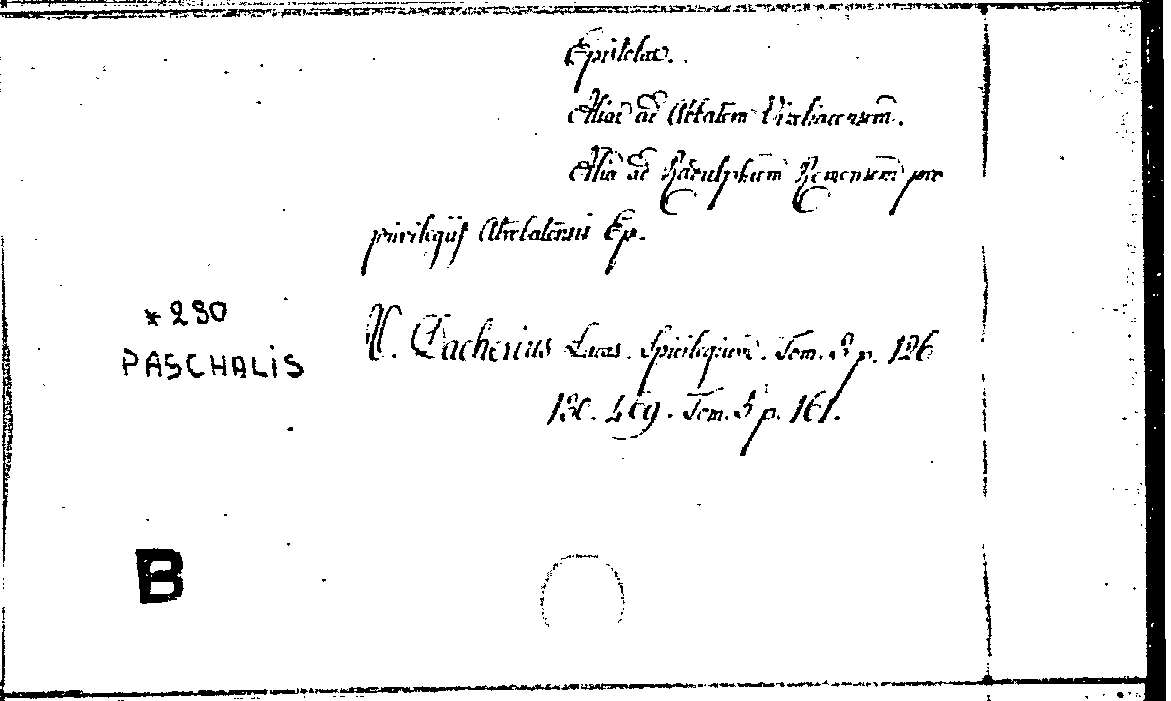 Epistolae.
Aliae ad Abbatem Vizeliacensem.
Alia ad Radulphum Remensem pro
privilegijs Atrebatensis Ep.
*290
PASCHALIS
V. Dacherius Lucas. Spicilegium. Tom. 3 p. 126
130. 409. Tom. 5 p. 161.
B